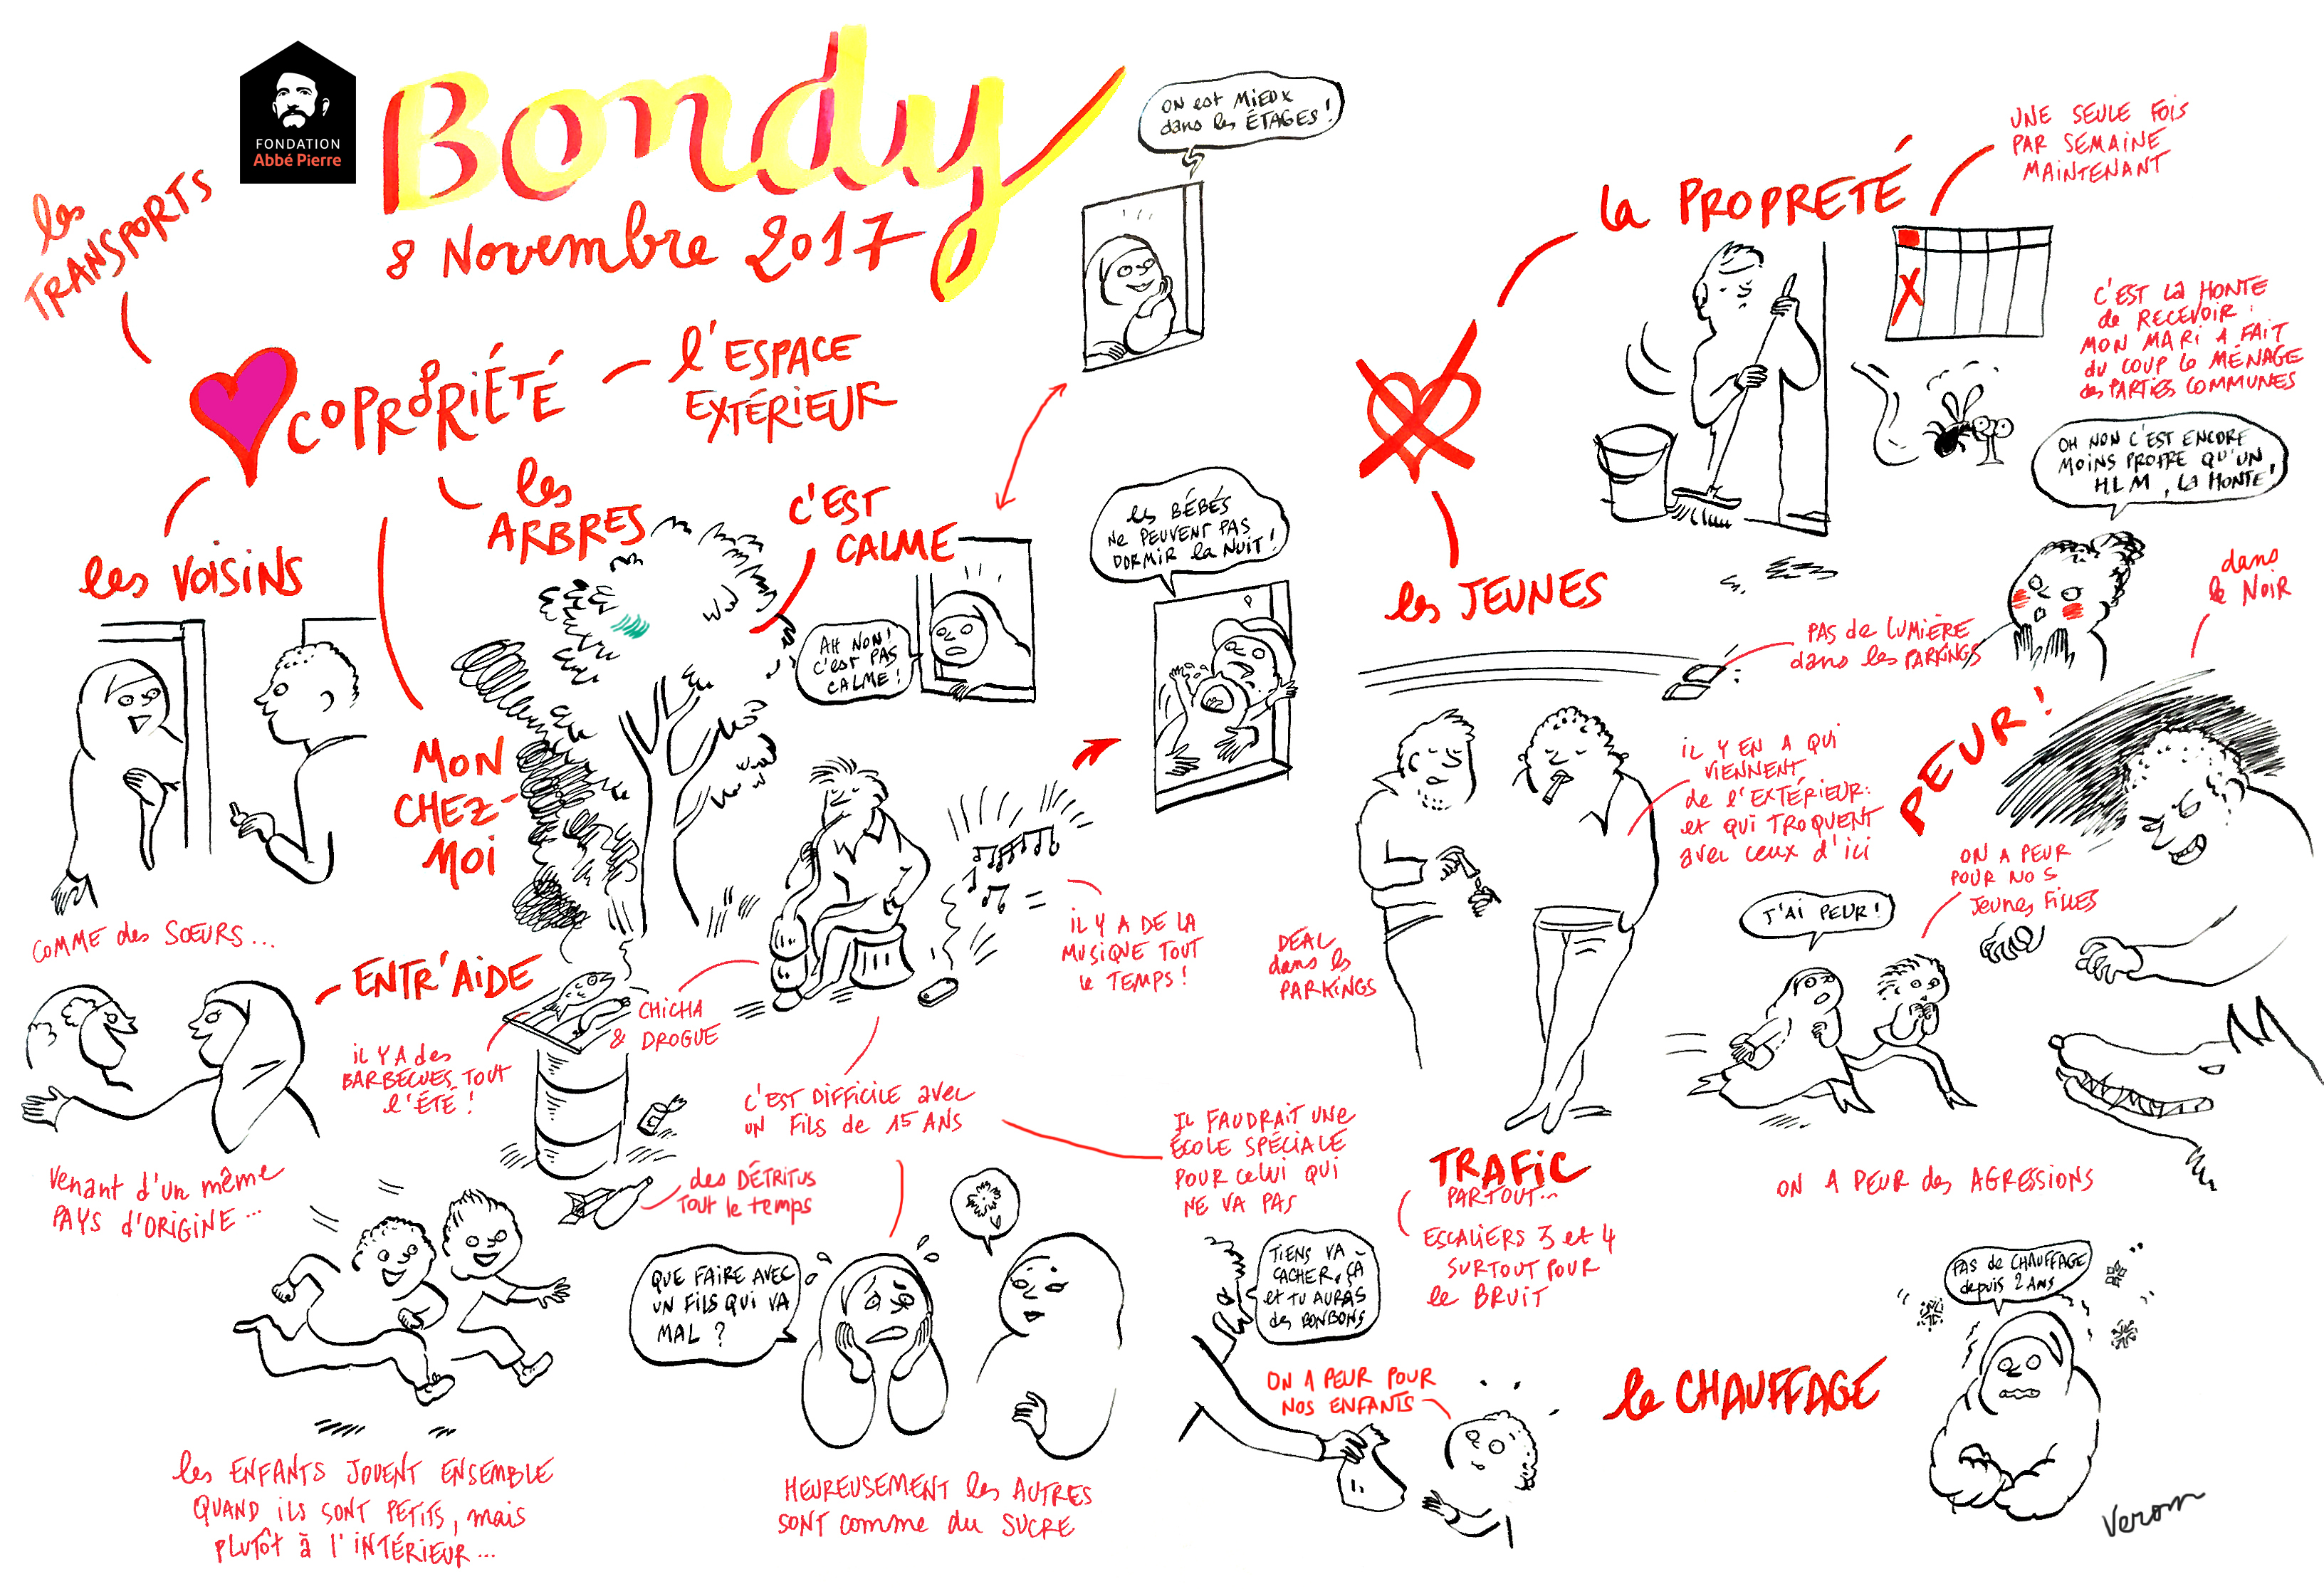 FONDATION
Abbé Pierre
Bondy
8 Novembre 2017
les
TRANSPORTS
COPROPRIÉTÉ
l'ESPACE
EXTÉRIEUR
les
ARBRES
C'EST
CALME
les VOISINS
MON
CHEZ-
MOI
ON est MIEUX
dans les ÉTAGES !
AH NON !
C'est PAS
CALME !
les BÉBÉS
Ne PEUVENT PAS
DORMIR la NUIT !
COMME des SOEURS...
ENTR'AIDE
Venant d'un même
PAYS d'ORIGINE...
les ENFANTS JOUENT ENSEMBLE
QUAND ILS SONT PETITS, mais
PLUTÔT à l'INTÉRIEUR...
IL Y A des
BARBECUES TOUT
l'ÉTÉ !
CHICHA
& DROGUE
IL Y A DE LA
MUSIQUE TOUT
le TEMPS !
C'EST DIFFICILE avec
UN FILS de 15 ANS
des DÉTRITUS
TOUT le temps
IL FAUDRAIT UNE
ÉCOLE SPÉCIALE
POUR CELUI QUI
NE VA PAS
QUE FAIRE AVEC
UN FILS QUI VA
MAL ?
HEUREUSEMENT les AUTRES
SONT comme du SUCRE
la PROPRETÉ
UNE SEULE FOIS
PAR SEMAINE
MAINTENANT
C'EST la HONTE
de RECEVOIR :
MON MARI A FAIT
du COUP le MÉNAGE
des PARTIES COMMUNES
OH NON C'EST ENCORE
MOINS PROPRE QU'UN
HLM, la HONTE !
les JEUNES
PAS de LUMIÈRE
dans les PARKINGS
IL Y EN A QUI
VIENNENT
de l'EXTÉRIEUR :
et QUI TROQUENT
avec ceux d'ici
DEAL
dans les
PARKINGS
dans
le NOIR
PEUR !
ON A PEUR
POUR NOS
Jeunes FILLES
J'AI PEUR !
ON A PEUR des AGRESSIONS
TRAFIC
PARTOUT...
ESCALIERS 3 et 4
SURTOUT POUR
le BRUIT
TIENS VA
CACHER ÇÀ
et TU AURAS
des BONBONS
ON A PEUR POUR
NOS ENFANTS
le CHAUFFAGE
PAS de CHAUFFAGE
depuis 2 ANS
Verom